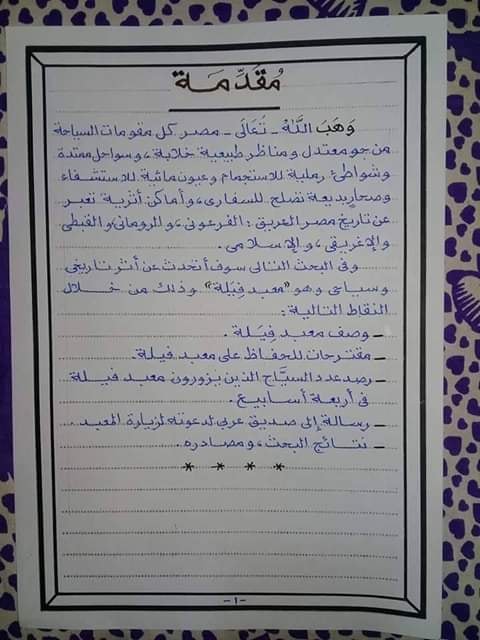 مُقَدِّمَة
وَهَبَ اللَّهُ - تَعَالَى - مصر كل مقومات السياحة
من جو معتدل ومناظر طبيعية خلابة، وسواحل ممتدة
وشواطئ رملية للاستجمام وعيون مائية للاستشفاء
وصحارٍ بديعة تصلح للسفاري، وأماكن أثرية تعبر
عن تاريخ مصر العريق: الفرعوني، والروماني والقبطي
والإغريقي، والإسلامي.
وفي البحث التالي سوف أتحدث عن أثر تاريخي
وسياحي وهو "معبد فِيَلة" وذلك من خلال
النقاط التالية:
- وصف معبد فِيَلة.
- مقترحات للحفاظ على معبد فيلة.
- رصد عدد السيَّاح الذين يزورون معبد فيلة
في أربعة أسابيع.
- رسالة إلى صديق عربي لدعوته لزيارة المعبد
- نتائج البحث، ومصادره.
* * * *
-١-